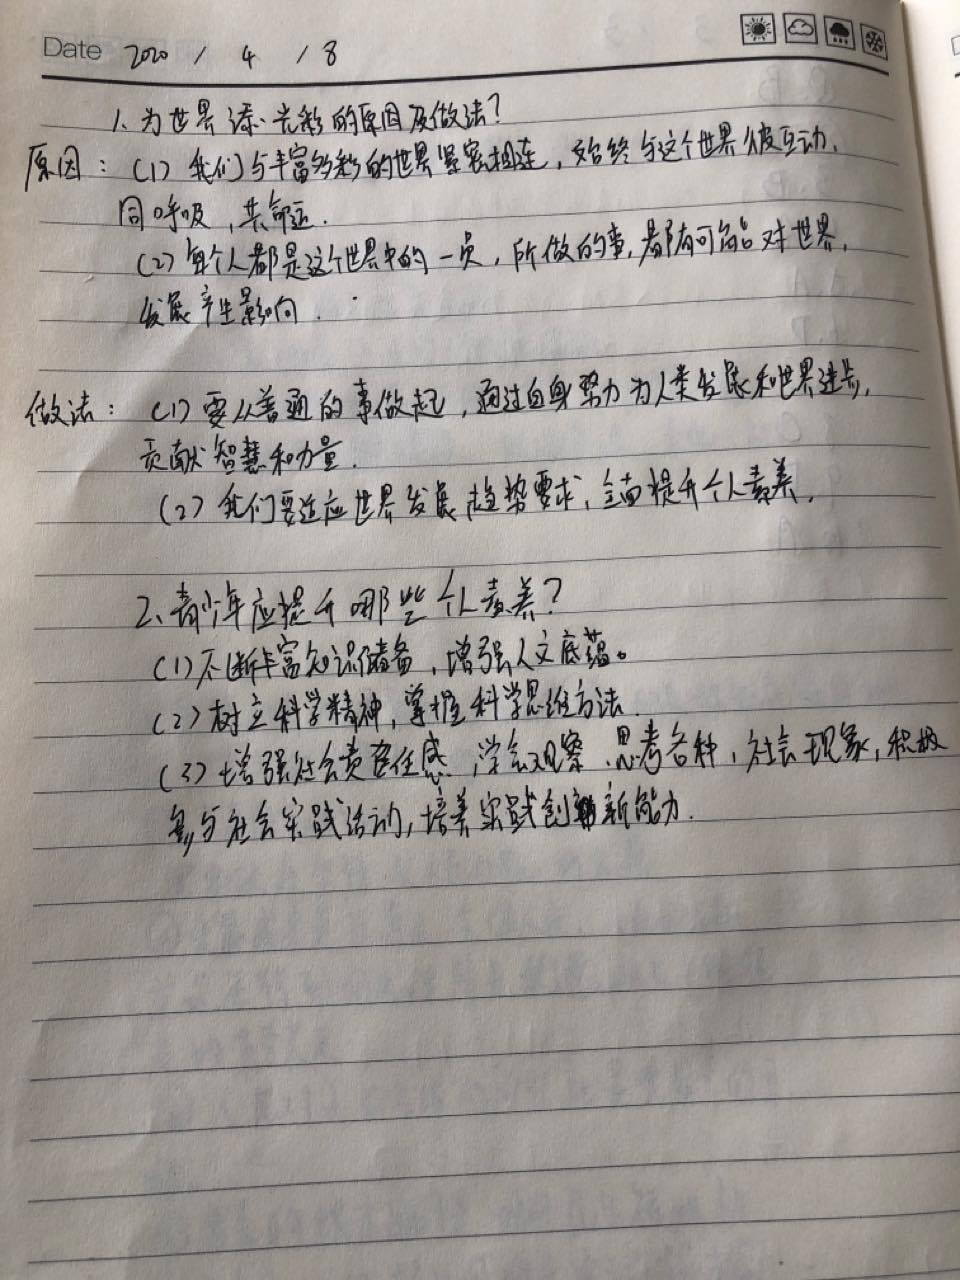 Date 2020 / 4 / 8
1、为世界添光彩的原因及做法？
原因：（1）我们与丰富多彩的世界紧密相连，始终与这个世界彼互动，
同呼吸，共命运.
（2）每个人都是这个世界中的一员，所做的事，都有可能对世界，
发展产生影响.
做法：（1）要从普通的事做起，通过自身努力为人类发展和世界进步，
贡献智慧和力量.
（2）我们要适应世界发展趋势要求，全面提升个人素养.
2、青少年应提升哪些个人素养？
（1）不断丰富知识储备，增强人文底蕴。
（2）树立科学精神，掌握科学思维方法.
（3）增强社会责任感，学会观察、思考各种，社会现象，积极
参与社会实践活动，培养实践创新能力.